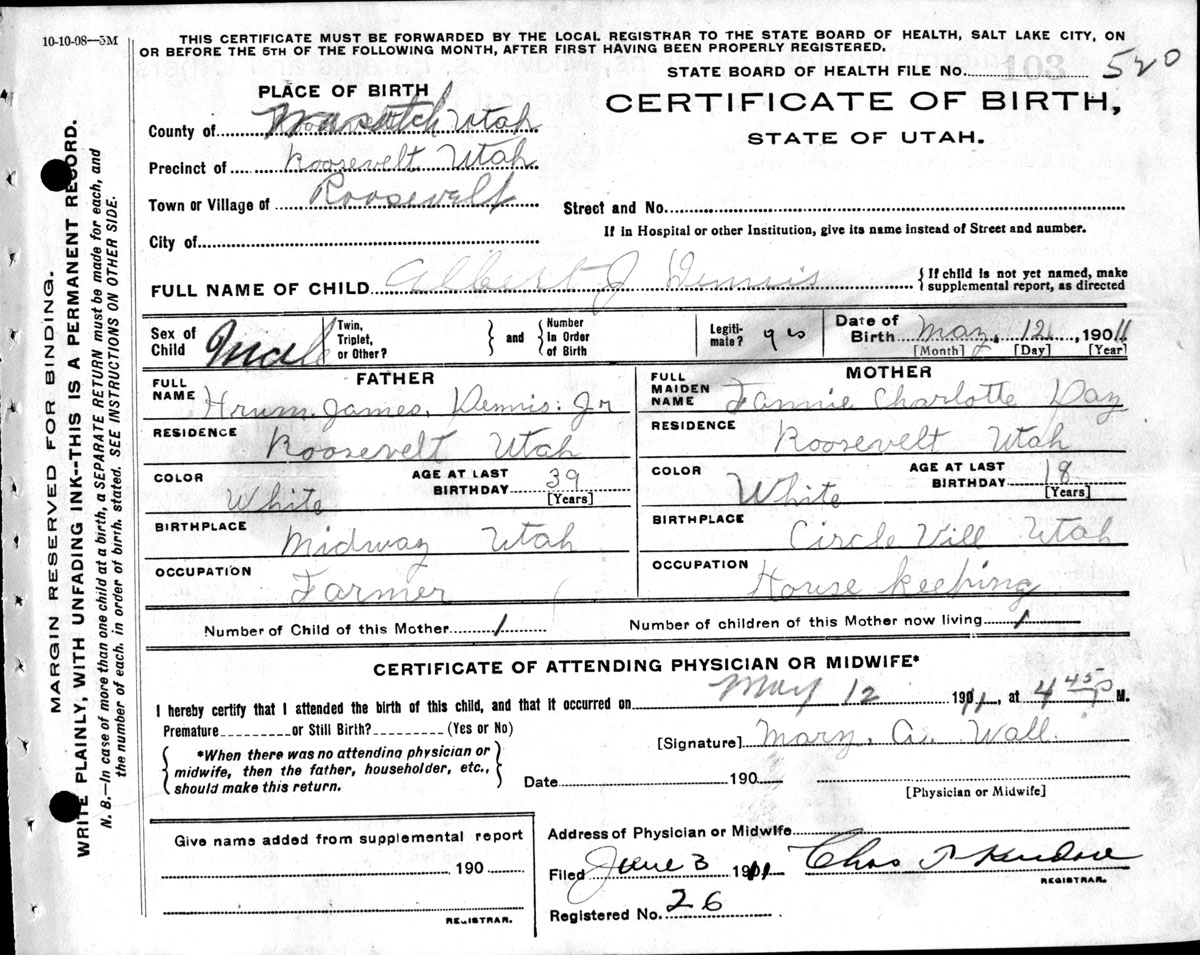 10-10-08—5M
THIS CERTIFICATE MUST BE FORWARDED BY THE LOCAL REGISTRAR TO THE STATE BOARD OF HEALTH, SALT LAKE CITY, ON
OR BEFORE THE 5TH OF THE FOLLOWING MONTH, AFTER FIRST HAVING BEEN PROPERLY REGISTERED.
STATE BOARD OF HEALTH FILE No. 103 520
PLACE OF BIRTH
CERTIFICATE OF BIRTH,
STATE OF UTAH.
County of Wasatch Utah
Precinct of Roosevelt Utah
Town or Village of Roosevelt
Street and No.
City of
If in Hospital or other Institution, give its name instead of Street and number.
FULL NAME OF CHILD Albert J Dennis
{If child is not yet named, make
supplemental report, as directed
Sex of Child Male
Twin, Triplet, or Other?
and
Number In Order of Birth
Legiti-mate? yes
Date of Birth May, 12, 1911
[Month] [Day] [Year]
FATHER
FULL NAME
Hrum. James. Dennis. Jr
RESIDENCE
Roosevelt Utah
COLOR
White
AGE AT LAST BIRTHDAY 39
[Years]
BIRTHPLACE
Midway Utah
OCCUPATION
Farmer
MOTHER
FULL MAIDEN NAME
Fannie Charlotte Day
RESIDENCE
Roosevelt Utah
COLOR
White
AGE AT LAST BIRTHDAY 18
[Years]
BIRTHPLACE
Circle Vill Utah
OCCUPATION
House keeping
Number of Child of this Mother 1
Number of children of this Mother now living 1
CERTIFICATE OF ATTENDING PHYSICIAN OR MIDWIFE*
I hereby certify that I attended the birth of this child, and that it occurred on May 12 1911, at 4 45 P M.
Premature or Still Birth? (Yes or No)
{*When there was no attending physician or
midwife, then the father, householder, etc.,
should make this return.}
[Signature] Mary. A. Wall.
Date 190
[Physician or Midwife]
Give name added from supplemental report
190
REGISTRAR.
Address of Physician or Midwife
Filed June 3 1911 Chas
REGISTRAR.
Registered No. 26
MARGIN RESERVED FOR BINDING.
WRITE PLAINLY, WITH UNFADING INK--THIS IS A PERMANENT RECORD.
N. B.—In case of more than one child at a birth, a SEPARATE RETURN must be made for each, and
the number of each, in order of birth, stated. SEE INSTRUCTIONS ON OTHER SIDE.